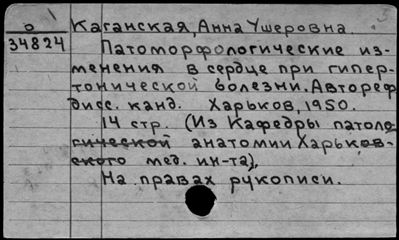 О Каганская, Анна Ушеровна.
34824 Патоморфологические из-
менения в сердце при гипер-
тонической болезни. Автореф
дисс. канд. Харьков, 1950.
14 стр. (Из Кафедры патоло
гической анатомии Харьков-
ского мед. ин-та),
На правах рукописи.